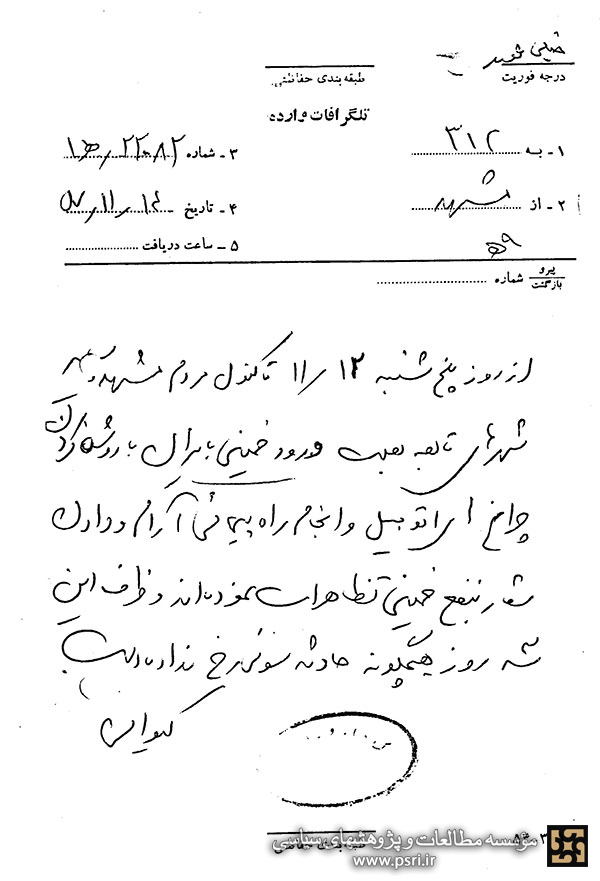 خیلی فوری
درجه فوریت
طبقه‌بندی حفاظتی
تلگرافات وارده
۱ - به ۳۱۲
۳ - شماره ۱۵/۲۲۰۸۲
۲ - از مشهد
۴ - تاریخ ۵۷/۱۱/۱۴
۵ - ساعت دریافت
پیرو
بازگشت
شماره
از روز پنج شنبه ۱۱/۱۲ تاکنون مردم مشهد و
شهرهای تابعه بعلت ورود خمینی بایران با روشن کردن
چراغ اتومبیل و انجام راه پیمائی آرام و دادن
شعار بنفع خمینی تظاهرات نموده‌اند و ظرف این
سه روز هیچگونه حادثه سوئی رخ نداده است
کیوان
طبقه‌بندی حفاظتی
موسسه مطالعات و پژوهشهای سیاسی
www.psri.ir